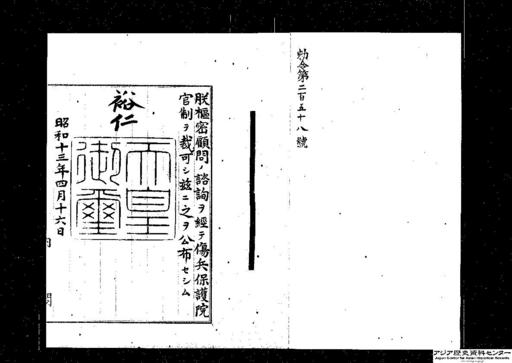 勅令第二百五十八號
朕樞密顧問ノ諮詢ヲ經テ傷兵保護院
官制ヲ裁可シ茲ニ之ヲ公布セシム
裕仁
天皇
御璽
昭和十三年四月十六日
内閣
アジア歴史資料センター
Japan Center for Asian Historical Records